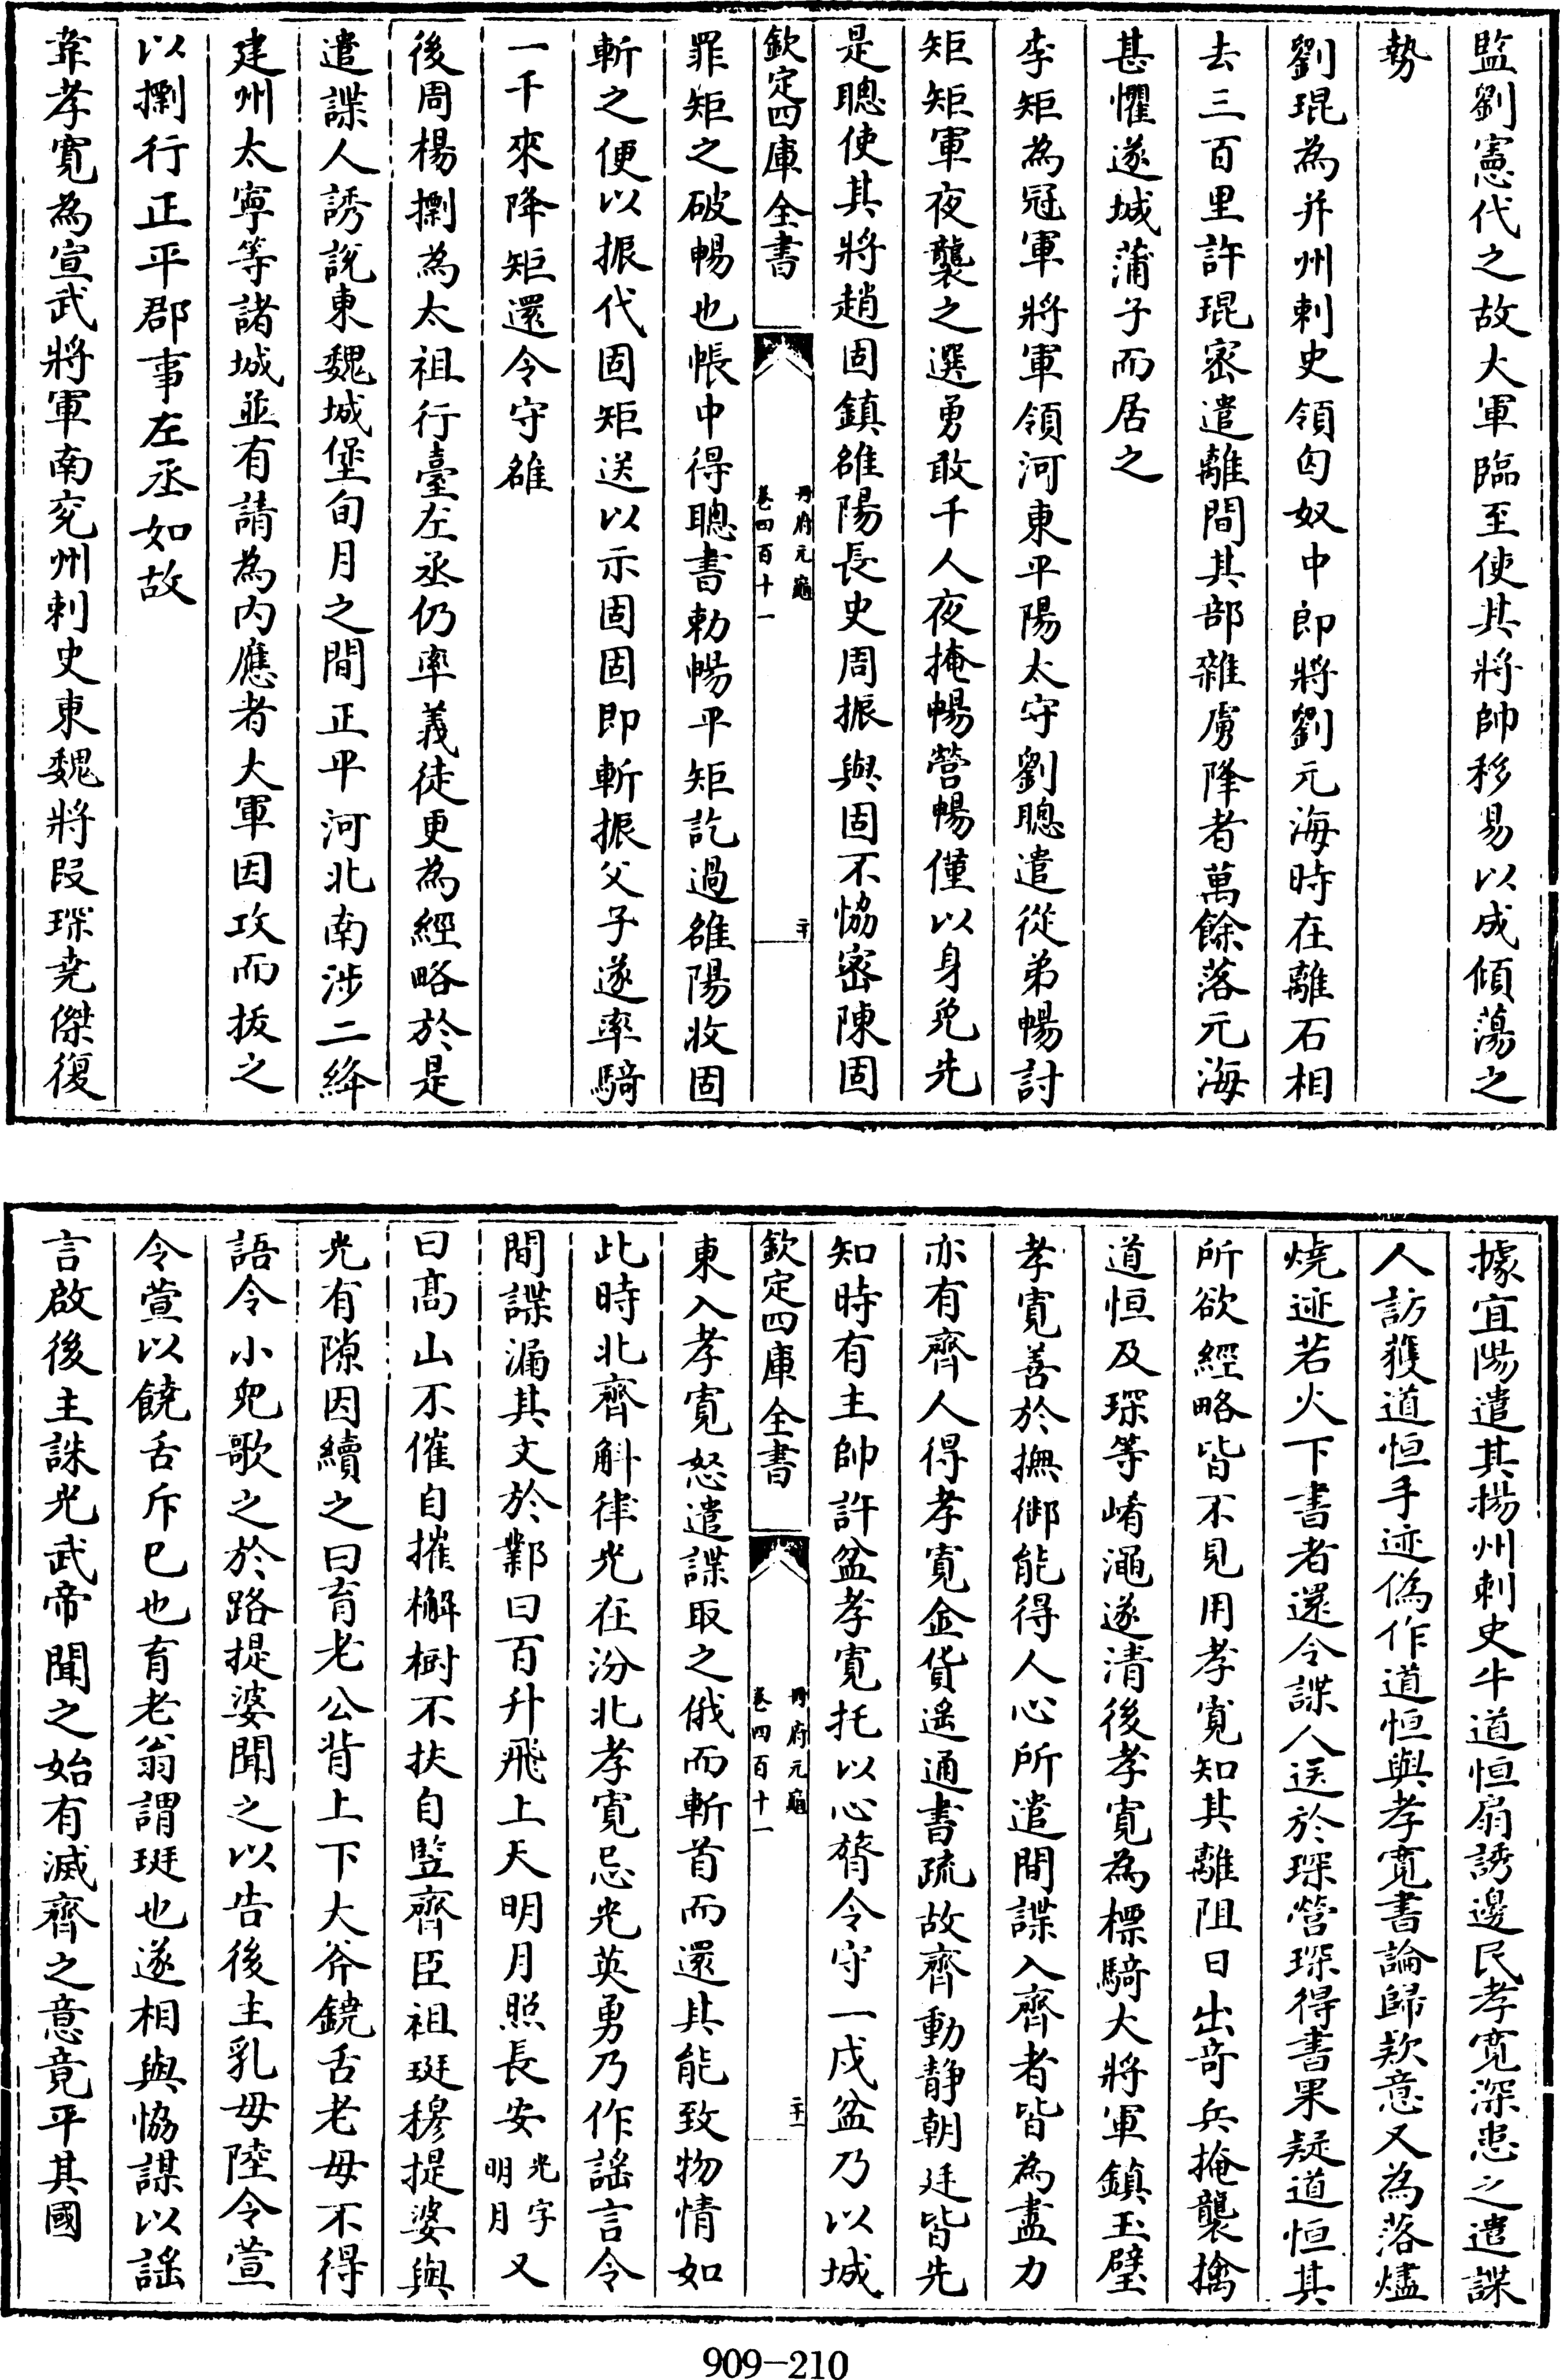 監劉憲代之故大軍臨至使其將帥移易以成傾蕩之
勢
劉琨為并州刺史領匈奴中郎將劉元海時在離石相
去三百里許琨密遣離間其部雜虜降者萬餘落元海
甚懼遂城蒲子而居之
李矩為冠軍將軍領河東平陽太守劉聰遣從弟暢討
矩矩軍夜襲之選勇敢千人夜掩暢營暢僅以身免先
是聰使其將趙固鎮雒陽長史周振與固不恊密陳固
欽定四庫全書
冊府元龜
卷四百十一
二十
罪矩之破暢也帳中得聰書勅暢平矩訖過雒陽收固
斬之便以振代固矩送以示固固即斬振父子遂率騎
一千來降矩還令守雒
後周楊㯹為太祖行臺左丞仍率義徒更為經略於是
遣諜人誘說東魏城堡旬月之間正平河北南涉二絳
建州太寧等諸城並有請為内應者大軍因攻而拔之
以㯹行正平郡事左丞如故
韋孝寛為宣武將軍南兖州刺史東魏將叚琛堯傑復
據宜陽遣其揚州刺史牛道恒扇誘邊民孝寛深患之遣諜
人訪獲道恒手迹偽作道恒與孝寛書論歸款意又為落燼
燒迹若火下書者還令諜人送於琛營琛得書果疑道恒其
所欲經略皆不見用孝寛知其離阻日出竒兵掩襲擒
道恒及琛等崤澠遂清後孝寛為標騎大將軍鎮玉壁
孝寛善於撫御能得人心所遣間諜入齊者皆為盡力
亦有齊人得孝寛金貨遥通書疏故齊動静朝廷皆先
知時有主帥許盆孝寛托以心膂令守一戍盆乃以城
欽定四庫全書
冊府元龜
卷四百十一
二十一
東入孝寛怒遣諜取之俄而斬首而還其能致物情如
此時北齊斛律光在汾北孝寛忌光英勇乃作謡言令
間諜漏其文於鄴曰百升飛上天明月照長安光字明月又
曰髙山不催自摧檞樹不扶自䜿齊臣祖珽穆提婆與
光有隙因續之曰育老公背上下大斧鐃舌老母不得
語令小兒歌之於路提婆聞之以告後主乳母陸令萱
令萱以饒舌斥巳也育老翁謂珽也遂相與恊謀以謡
言啟後主誅光武帝聞之始有滅齊之意竟平其國
909-210